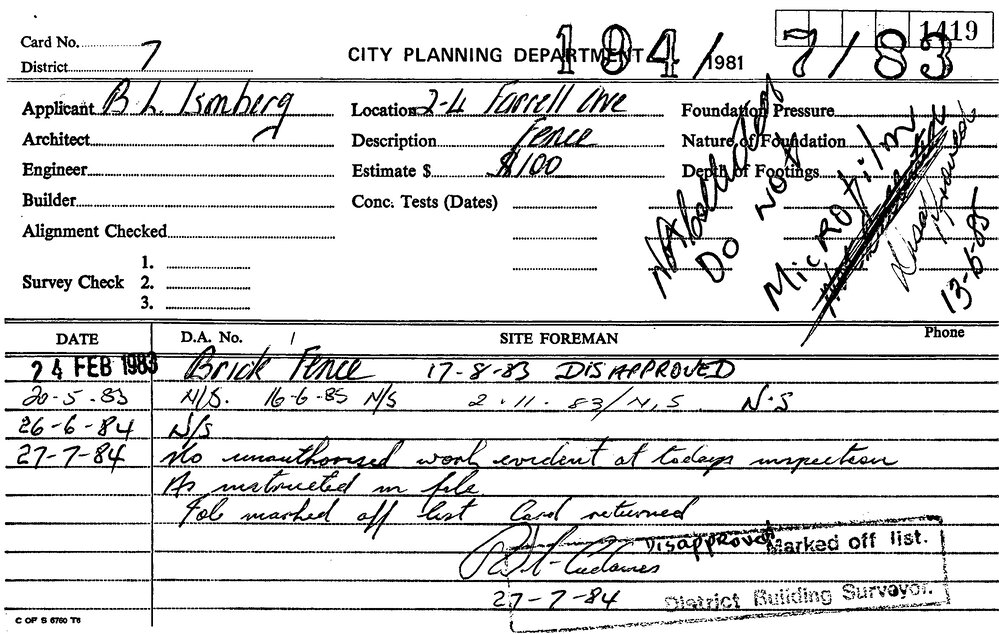 1419
Card No.
194/1981 7/83
District 7
CITY PLANNING DEPARTMENT
Applicant B. L. Isenberg Location 2-4 Farrell Ave Foundation Pressure
Architect Description Fence Nature of Foundation
Engineer Estimate $ $100 Depth of Footings
Builder Conc. Tests (Dates)
Alignment Checked
DO NOT
MicROfilm
Disapproved
13-6-85
1.
Survey Check 2.
3.
DATE D.A. No. SITE FOREMAN Phone
24 FEB 1983 Brick Fence 17-8-83 DISAPPROVED
20-5-83 N/S. 16-6-85 N/S 2.11.83/N.S N.S
26-6-84 N/S
27-7-84 No unauthorised work evident at todays inspection
As instructed in file
Job marked off list Card returned
Disapproved Marked off list.
27-7-84 District Building Surveyor.
C OF S 6760 T6